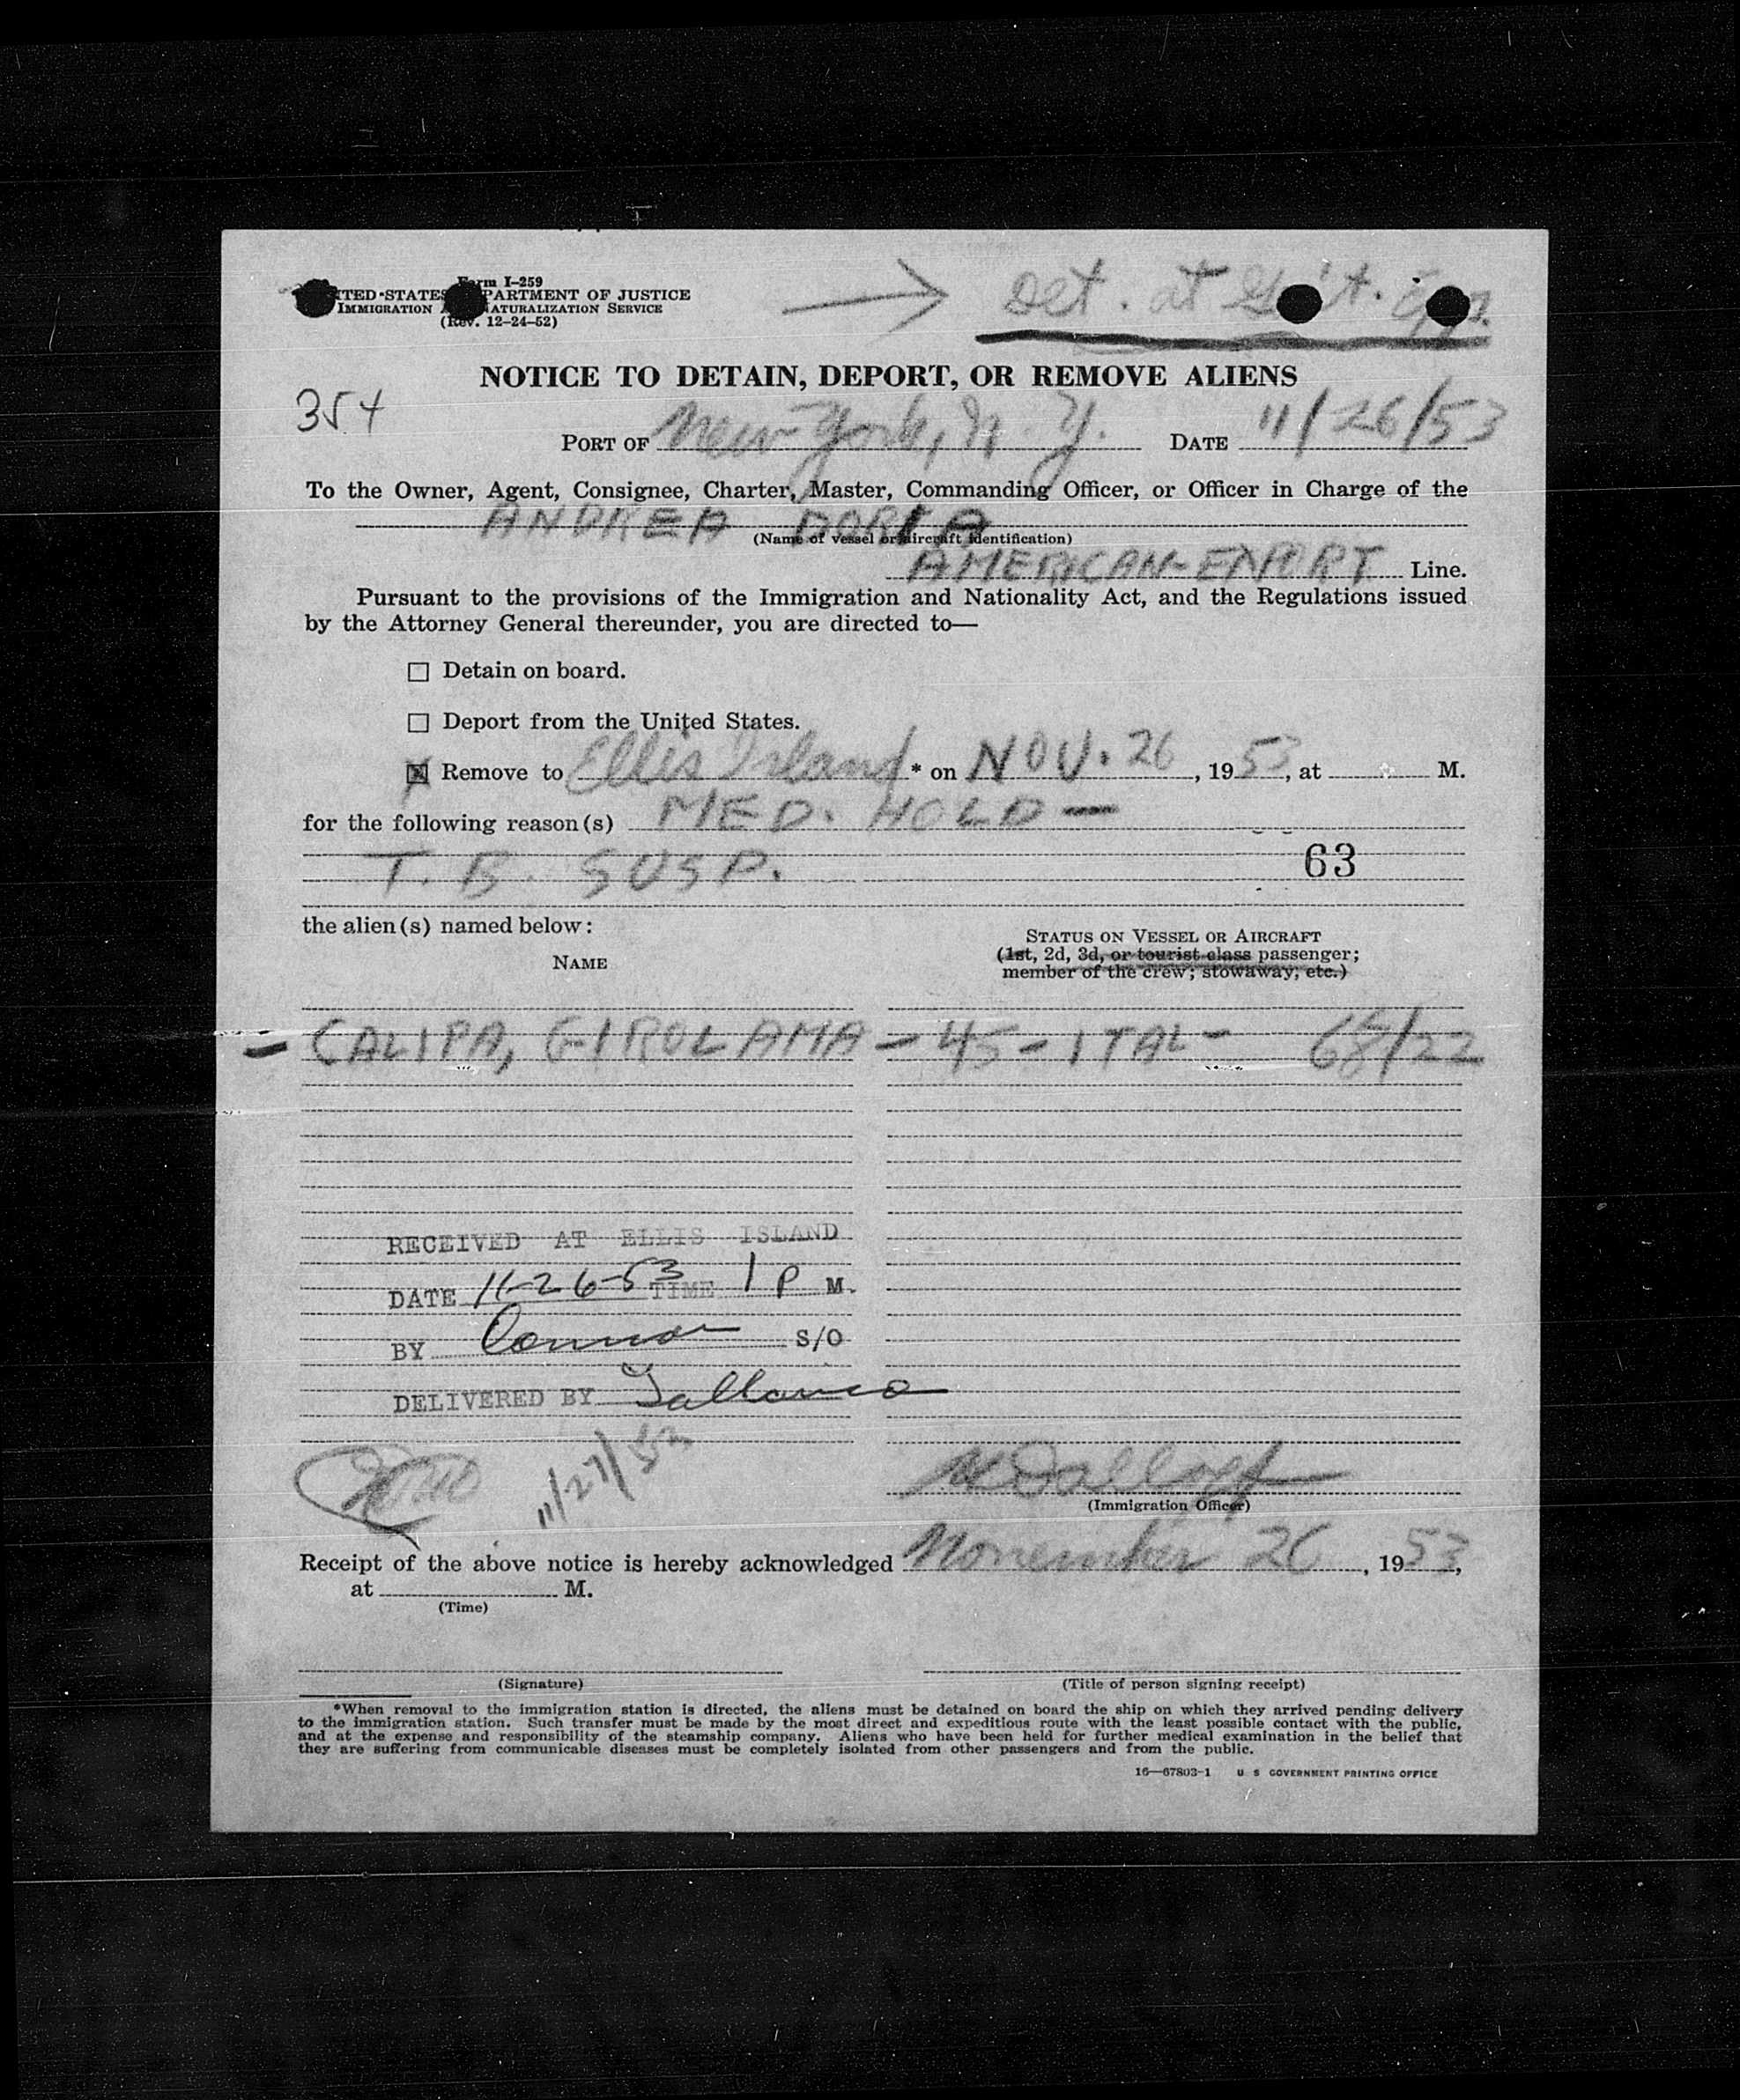 Form I-259
UNITED STATES DEPARTMENT OF JUSTICE
IMMIGRATION AND NATURALIZATION SERVICE
(Rev. 12-24-52)
Det. at Gov't. Exp.
NOTICE TO DETAIN, DEPORT, OR REMOVE ALIENS
354
PORT OF New York, N.Y. DATE 11/26/53
To the Owner, Agent, Consignee, Charter, Master, Commanding Officer, or Officer in Charge of the
ANDREA DORIA
(Name of vessel or aircraft identification)
AMERICAN-EXPORT Line.
Pursuant to the provisions of the Immigration and Nationality Act, and the Regulations issued
by the Attorney General thereunder, you are directed to—
☐ Detain on board.
☐ Deport from the United States.
☒ Remove to Ellis Island * on NOV. 26, 1953, at M.
for the following reason(s) MED. HOLD —
T. B. SUSP. 63
the alien(s) named below:
NAME
STATUS ON VESSEL OR AIRCRAFT
(1st, 2d, 3d, or tourist class passenger;
member of the crew; stowaway; etc.)
- CALIPA, GIROLAMA - 45 - ITAL - 68/22
RECEIVED AT ELLIS ISLAND
DATE 11-26-53 TIME 1 P M.
BY Connor S/O
DELIVERED BY
11/27/53
(Immigration Officer)
Receipt of the above notice is hereby acknowledged November 26, 1953,
at M.
(Time)
(Signature)
(Title of person signing receipt)
*When removal to the immigration station is directed, the aliens must be detained on board the ship on which they arrived pending delivery
to the immigration station. Such transfer must be made by the most direct and expeditious route with the least possible contact with the public,
and at the expense and responsibility of the steamship company. Aliens who have been held for further medical examination in the belief that
they are suffering from communicable diseases must be completely isolated from other passengers and from the public.
16—67803-1 U S GOVERNMENT PRINTING OFFICE